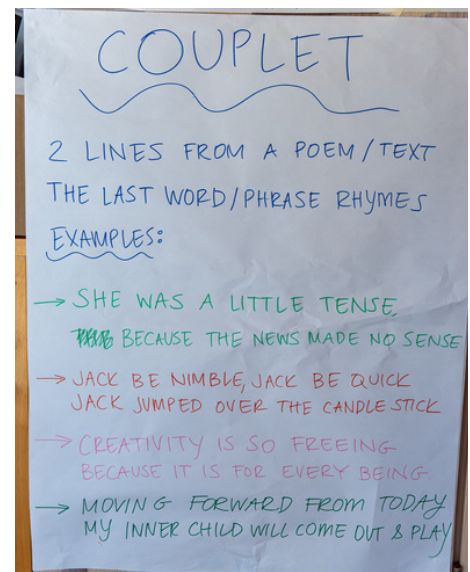 COUPLET
2 LINES FROM A POEM/TEXT
THE LAST WORD/PHRASE RHYMES
EXAMPLES:
→ SHE WAS A LITTLE TENSE,
BECAUSE THE NEWS MADE NO SENSE
→ JACK BE NIMBLE, JACK BE QUICK
JACK JUMPED OVER THE CANDLE STICK
→ CREATIVITY IS SO FREEING
BECAUSE IT IS FOR EVERY BEING
→ MOVING FORWARD FROM TODAY
MY INNER CHILD WILL COME OUT & PLAY